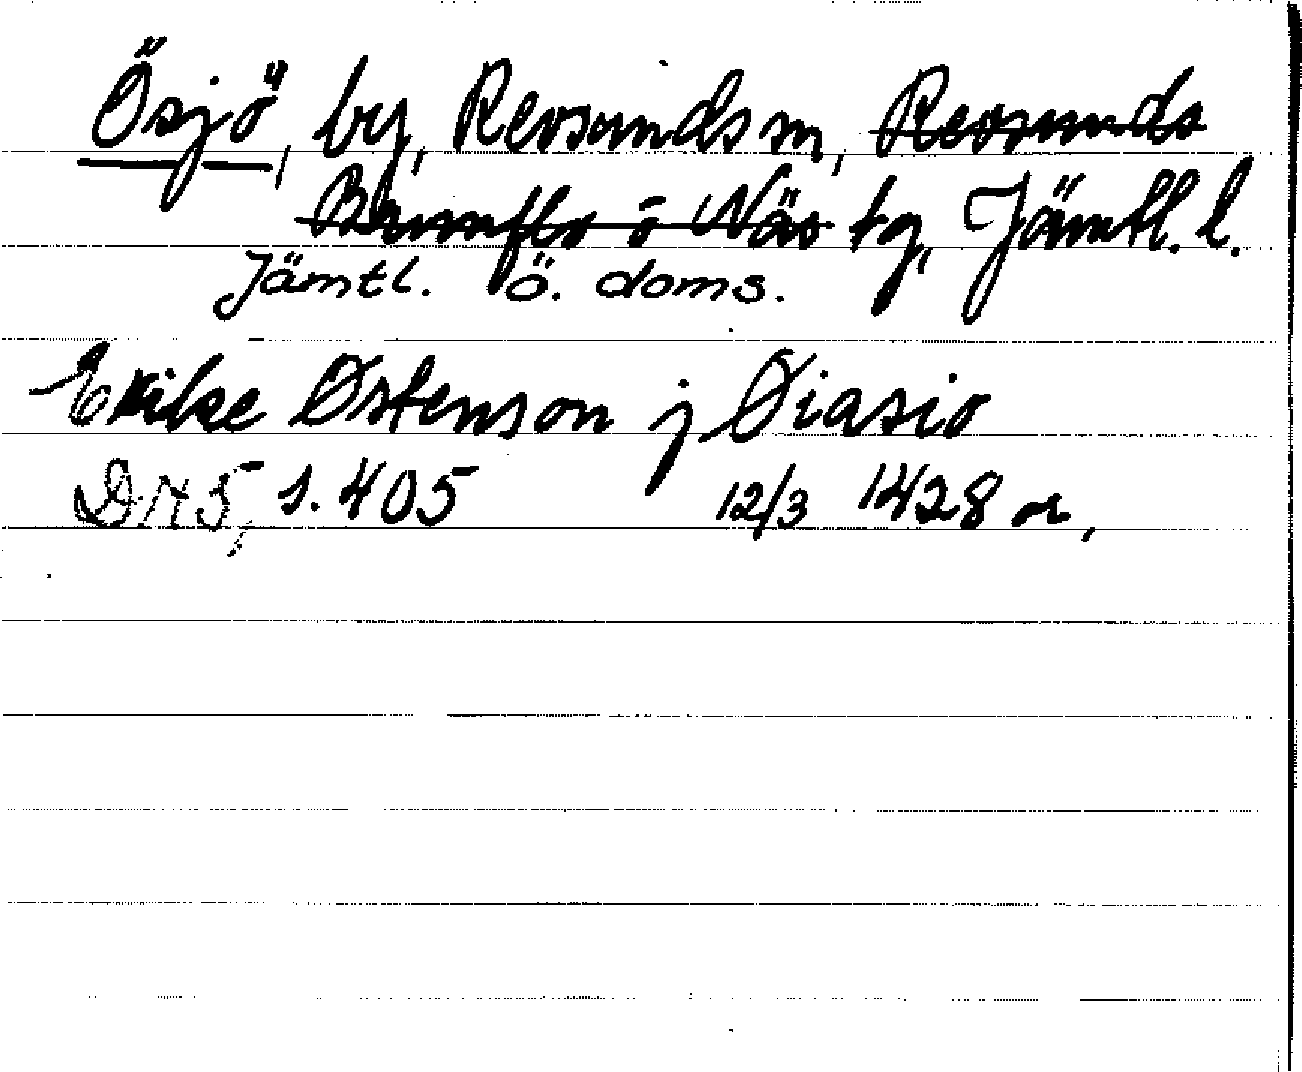 Ösjö, by, Revsunds sn, Revsunds
Brunflo o Näs tg, Jämtl. l.
Jämtl. Ö. doms.
Erikse Østenson j Øiasio
DN 5, s. 405 12/3 1428 or.